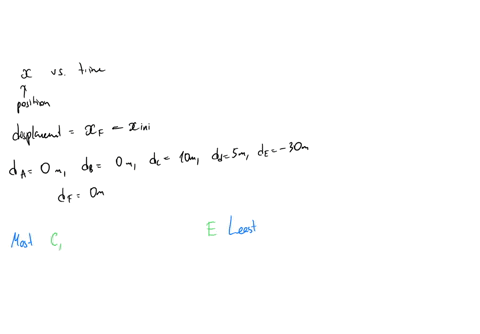 x vs. time
↑
position
desplament = x_F - x_ini
d_A = 0 m, d_B = 0 m, d_C = 10 m, d_d = 5m, d_E = -30m
d_F = 0m
Most C, E Leest